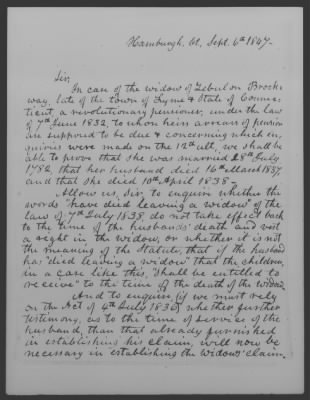 Hamburgh, Ct, Sept. 6th 1847.
Sir,
In case of the widow of Zebulon Brock-
way, late of the town of Lyme & State of Connec-
ticut, a revolutionary pensioner, under the law
of 7th June 1832, to whom heirs arrears of pension
are supposed to be due & concerning which en-
quiries were made on the 12th ult, we shall be
able to prove that she was married 28th July
1782, that her husband died 16th March 1837
and that she died 10th April 1838 -
Allow us, Sir, to enquire whether the
words "have died leaving a widow" of the
law of 7th July 1838, do not take effect back
to the time of the husbands death and vest
a right in the widow, or whether it is not
the meaning of the Statute, that if the husband
has "died leaving a widow" that the children,
in a case like this, "shall be entitled to
receive" to the time of the death of the widow.
And to enquire (if we must rely
on the Act of 4th July 1836) whether further
testimony, as to the time of service of the
husband, than that already furnished
in establishing his claim, will now be
necessary in establishing the widows' claim.